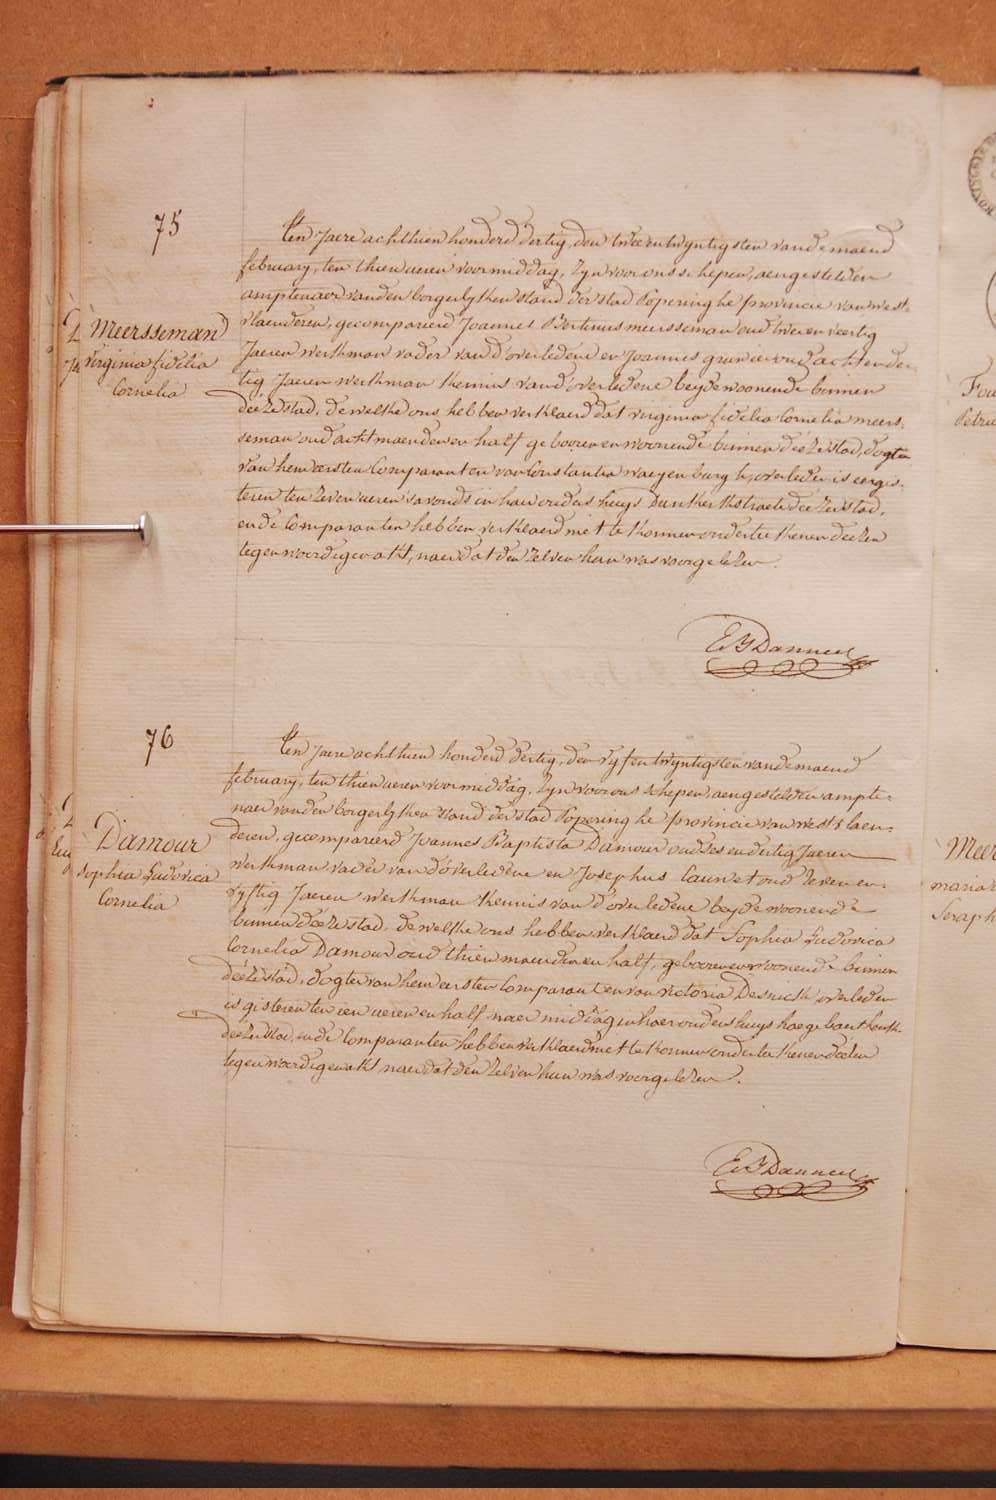 75
Ten Jaere achthien honderd dertig, den tweentwyntigsten van de maend
february, ten thien ueren voormiddag, zyn voor ons schepen, aengestelden
amptenaer van den borgerlyken stand der stad Poperinghe provincie van west-
vlaenderen, gecompareerd Joannes Bertinus meersseman oud twee en veertig
Meersseman
virginia fidelia
Cornelia
Jaeren werkman vader van d'overledene en Joannes oud acht en der-
tig Jaeren werkman kennis van d'overledene beyde woonende binnen
deeze stad, de welke ons hebben verklaerd dat virginia fidelia Cornelia meers-
seman oud acht maenden en half gebooren en woonende binnen deeze stad, dogter
van hem eersten Comparant en van Constantia waeyenburgh, overleden is eergis-
teren ten zeven ueren s'avonds in haer ouders huys Dunkerkstraete deezer stad,
en de Comparanten hebben verklaerd niet te konnen onderteekenen deezen
tegenwoordigen akt, naer dat den zelven hun was voorgelezen.
76
Ten Jaere achthien honderd dertig, den vyfentwyntigsten van de maend
february, ten thien ueren voormiddag, zyn voor ons schepen, aengestelden ampte-
naer van den borgerlyken stand der stad Poperinghe provincie van westvlaen-
deren, gecompareerd Joannes Baptista Damour oud ses en dertig Jaeren
Damour
Sophia Ludovica
Cornelia
werkman vader van d'overledene en Josephus Cauwet oud zeven en
vyftig Jaeren werkman kennis van d'overledene beyde woonende
binnen deeze stad, de welke ons hebben verklaerd dat Sophia Ludovica
Cornelia Damour oud thien maenden en half, gebooren en woonende binnen
deeze stad, dogter van hem eersten Comparant en van victoria Desnick overleden
is gisteren ten een ueren en half naer middag in haer ouders huys
deezer stad, en de Comparanten hebben verklaerd niet te konnen onderteekenen deezen
tegenwoordigen akt, naer dat den zelven hun was voorgelezen.